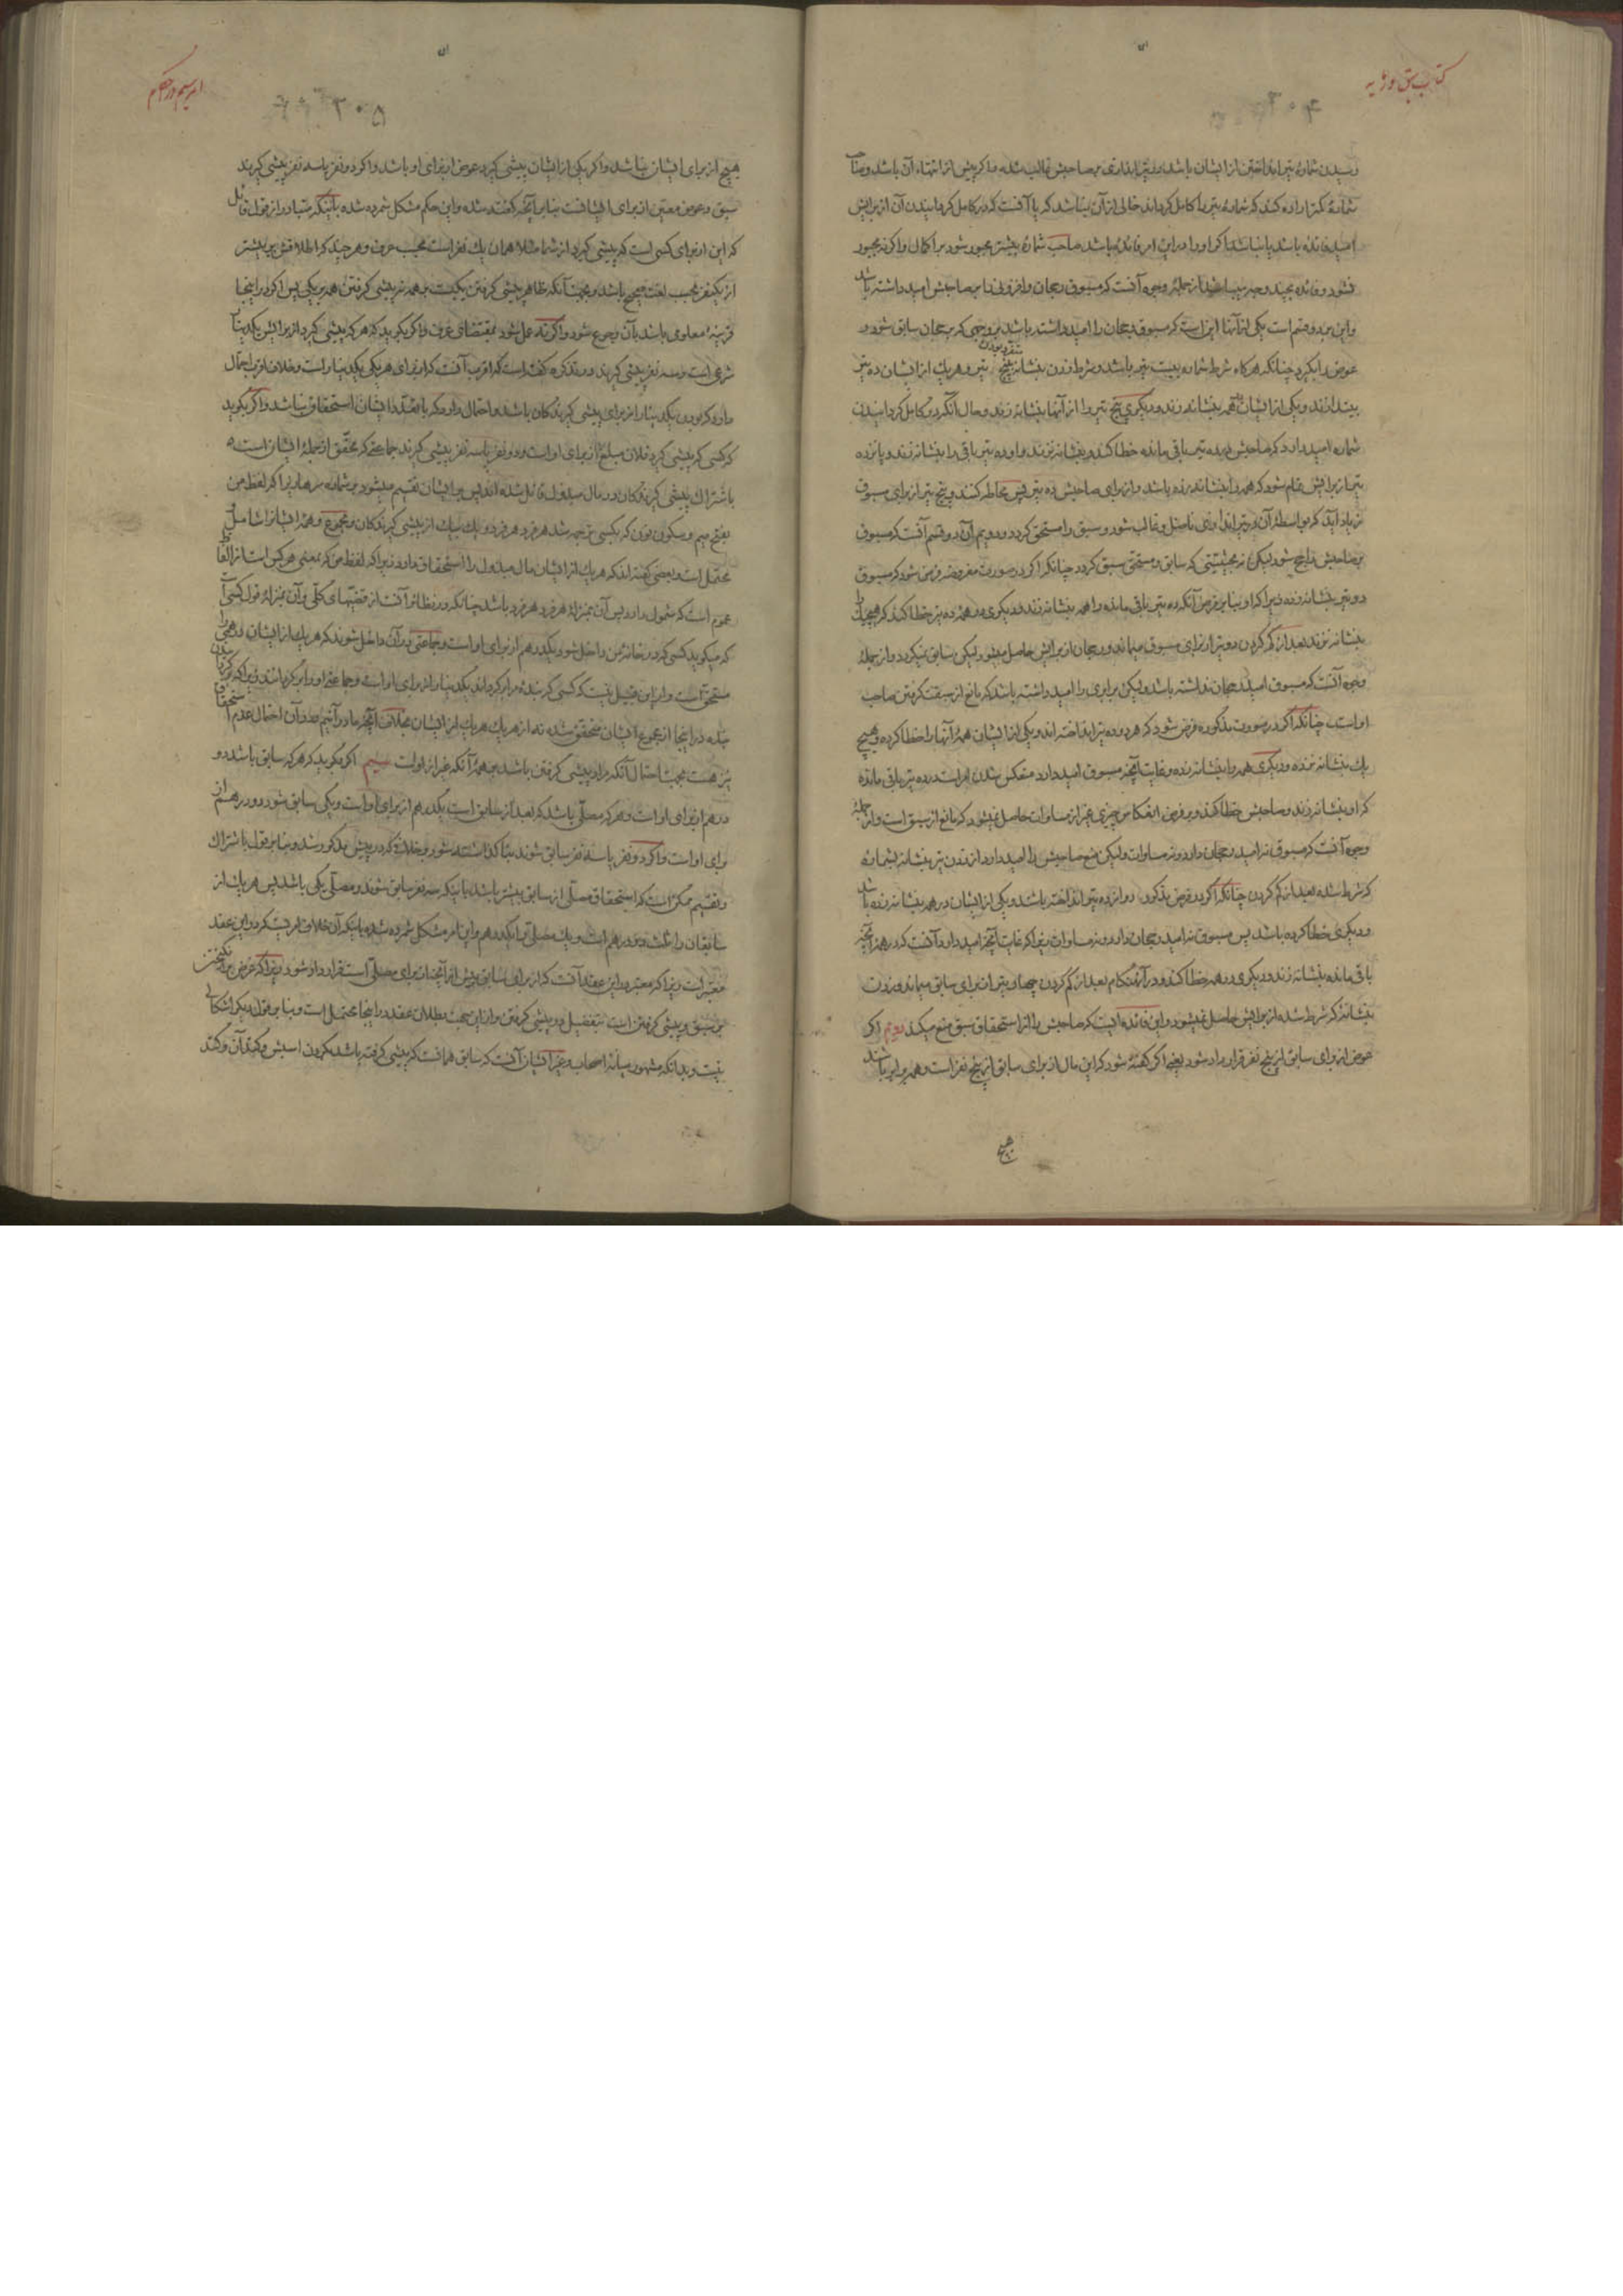 كتاب سبق و رمايه
رسيدن شمارهٔ تير انداختن از ايشان باشد و تير اندازى بر صاحبش غالب شده و اگر پيش از انتهاء آن باشد و صاحب
شمارهٔ كمتر اراده كند كه شمارهٔ تير را كامل كرداند خالى از آن نباشد كه يا آنست كه در كامل كردانيدن آن از برايش
اميد فائده باشد يا نباشد اگر او را در اين امر فائده باشد صاحب شمارهٔ بيشتر مجبور شود بر اكمال و اگر نه مجبور
نشود و فائده بچند وجه ميباشد از جملهٔ وجوه آنست كه مسبوق رجحان و افزونى را بر صاحبش اميد داشته باشد
و اين بر دو قسم است يكى از آنها اين است كه مسبوق رجحان را اميد داشته باشد بر وجهى كه بر رجحان سابق شود و
عوض را بگيرد چنانكه هر گاه شرط شماره بيست تير باشد و شرط زدن بنشانه پنج تير و هر يك از ايشان ده تير
بيندازند و يكى از ايشان همه بنشانه زند و ديگرى پنج تير را از آنها بنشانه زند و حال آنكه در كامل كردانيدن
شماره اميد دارد كه صاحبش در ده تير باقى مانده خطا كند و بنشانه نزند و او ده تير باقى را بنشانه زند و پانزده
تير از برايش تمام شود كه همه را بنشانه زده باشد و از براى صاحبش ده تير پس مخاطر كنند و پنج تير از براى مسبوق
زياد آيد كه بواسطهٔ آن در تير اندازى فاضل و غالب شود و سبق را مستحق كردد و دويم آن دو قسم آنست كه مسبوق
بر صاحبش راجح شود ليكن نه بحيثيتى كه سابق و مستحق سبق كردد چنانكه اگر در صورت مفروضه فرض شود كه مسبوق
دو تير بنشانه زده زيرا كه او بنابر فرض آنكه ده تير باقى مانده را همه بنشانه زند و ديگرى در همهٔ ده تير خطا كند كه هيچيك را
بنشانه نزند بعد از كم كردن دو تير از براى مسبوق ميماند و رجحان از برايش حاصل ميشود ليكن سابق نميكردد و از جملهٔ
وجوه آنست كه مسبوق اميد رجحان نداشته باشد وليكن برابرى را اميد داشته باشد كه مانع از سبقت گرفتن صاحب
اوست چنانكه اگر در صورت مذكوره فرض شود كه هر دو ده تير انداخته اند و يكى از ايشان همهٔ آنها را خطا كرده و هيچ
يك بنشانه نزده و ديگرى همه را بنشانه زده و غايت آنچه مسبوق اميد دارد منعكس شدن امر است در ده تير باقى مانده
كه او بنشانه زند و صاحبش خطا كند و بر فرض انعكاس چيزى غير از مساوات حاصل نميشود كه مانع از سبق است و از جملهٔ
وجوه آنست كه مسبوق نه اميد رجحان دارد و نه مساوات وليكن منع صاحبش را اميد دارد از زدن تير بنشانه بشمارهٔ
كه شرط شده بعد از كم كردن چنانكه اگر در فرض مذكور دوازده تير انداخته باشد و يكى از ايشان در همه بنشانه زده باشد
و ديگرى خطا كرده باشد پس مسبوق نه اميد رجحان دارد و نه مساوات زيرا كه غايت آنچه اميد دارد آنست كه در همهٔ آنچه
باقى مانده بنشانه زند و ديگرى در همه خطا كند و در آن هنگام بعد از كم كردن چهار تير از براى سابق ميماند و زدن
بنشانهٔ كه شرط شده از برايش حاصل نميشود و اين فائده ايست كه صاحبش را از استحقاق سبق منع ميكند دويم اگر
عوض از براى سابق از پنج نفر قرار داد شود يعنى اگر گفته شود كه اين مال از براى سابق از پنج نفر است و همه برابر باشند
هيچ
امر سيم در احكام
۳۰۵
هيچ از براى ايشان نباشد و اگر يكى از ايشان پيشى گيرد عوض از براى او باشد و اگر دو نفر يا سه نفر پيشى گيرند
سبق و عوض معين از براى ايشانست بنابر آنچه گفته شده و اين حكم مشكل شمرده شده باينكه متبادر از قول قائل
كه اين از براى كسى است كه پيشى گيرد از شما مثلا همان يك نفر است بحسب عرف و هر چند كه اطلاقش بر بيشتر
از يكنفر بحسب لغت صحيح باشد و بجهت آنكه ظاهر پيشى گرفتن يكيست بر همه نه پيشى گرفتن همه بر يكى پس اگر در اينجا
قرينهٔ معلومى باشد بآن رجوع شود و اگر نه عمل شود بمقتضاى عرف و اگر بگويد كه هر كه پيشى گيرد از برايش يكدينار
شرى است و سه نفر پيشى گيرند در تذكره گفته است كه اقرب آنست كه از براى هر يكى يكدينار است و خلاف اقرب احتمال
دارد كه بودن يكدينار از براى پيشى گيرندكان باشد و احتمال دارد كه با تعدد ايشان استحقاق نباشد و اگر بگويد
كه كسى كه پيشى گيرد فلان مبلغ از براى او است و دو نفر يا سه نفر پيشى گيرند جماعتى كه محقق از جملهٔ ايشان است
باشتراك پيشى گيرندكان در مال مبذول قائل شده اند پس بر ايشان تقسيم ميشود بر شماره سرها زيرا كه لفظ من
بفتح ميم و سكون نون كه بكسى ترجمه شد هر فرد هر فرد و يك بيك از پيشى گيرندكان و مجموع و همهٔ ايشانرا شاملست
محتمل است و بعضى گفته اند كه هر يك از ايشان مال مبذول را استحقاق دارد زيرا كه لفظ من كه بمعنى هر كس است از الفاظ
عموم است كه شمول دارد پس آن بمنزلهٔ هر فرد هر فرد باشد چنانكه در نظائر آنست از قضيتهاى كلى و آن بمنزلهٔ قول كسى است
كه ميگويد كسى كه در خانهٔ من داخل شود يكدرهم از براى او است و جماعتى در آن داخل شوند كه هر يك از ايشان درهمى را
مستحق است و از اين قبيل نيست كه كسى كه بندهٔ مرا برگرداند يكدينار از براى او است و جماعتى او را برگردانند زيرا كه برگردانيدن
بنده در اينجا از مجموع ايشان متحقق شده نه از هر يك هر يك از ايشان بخلاف آنچه ما در آنيم و در آن احتمال عدم استحقاق
نيز هست بجهت احتمال آنكه مراد پيشى گرفتن باشد بر همهٔ آنكه غير از اوست سيم اگر بگويد كه هر كه سابق باشد دو
درهم از براى او است و هر كه مصلى باشد كه بعد از سابق است يكدرهم از براى او است و يكى سابق شود دو درهم از
براى او است و اگر دو نفر يا سه نفر سابق شوند بنا گذاشته شود بر خلافى كه در پيش مذكور شد و بنابر قول باشتراك
و تقسيم ممكن است كه استحقاق مصلى از سابق بيشتر باشد باينكه سه نفر سابق شوند و مصلى يكى باشد پس هر يك از
سابقان را ثلث دو درهم است و يك مصلى را يكدرهم و اين امر مشكل شمرده شده باينكه آن خلاف امريست كه در اين عقد
معتبر است زيرا كه معتبر در اين عقد آنست كه از براى سابق بيش از آنچه از براى مصلى است قرار داد شود زيرا كه غرض برانگيختن
بر سبق و پيشى گرفتن است بتفضيل در پيشى گرفتن و از اين جهت بطلان عقد در اينجا محتمل است و بنابر قول ديگر اشكالى
نيست و بدانكه مشهور ميانهٔ اصحاب و غير ايشان آنست كه سابق همانست كه پيشى گرفته باشد بگردن اسبش و كتد آن و كتد